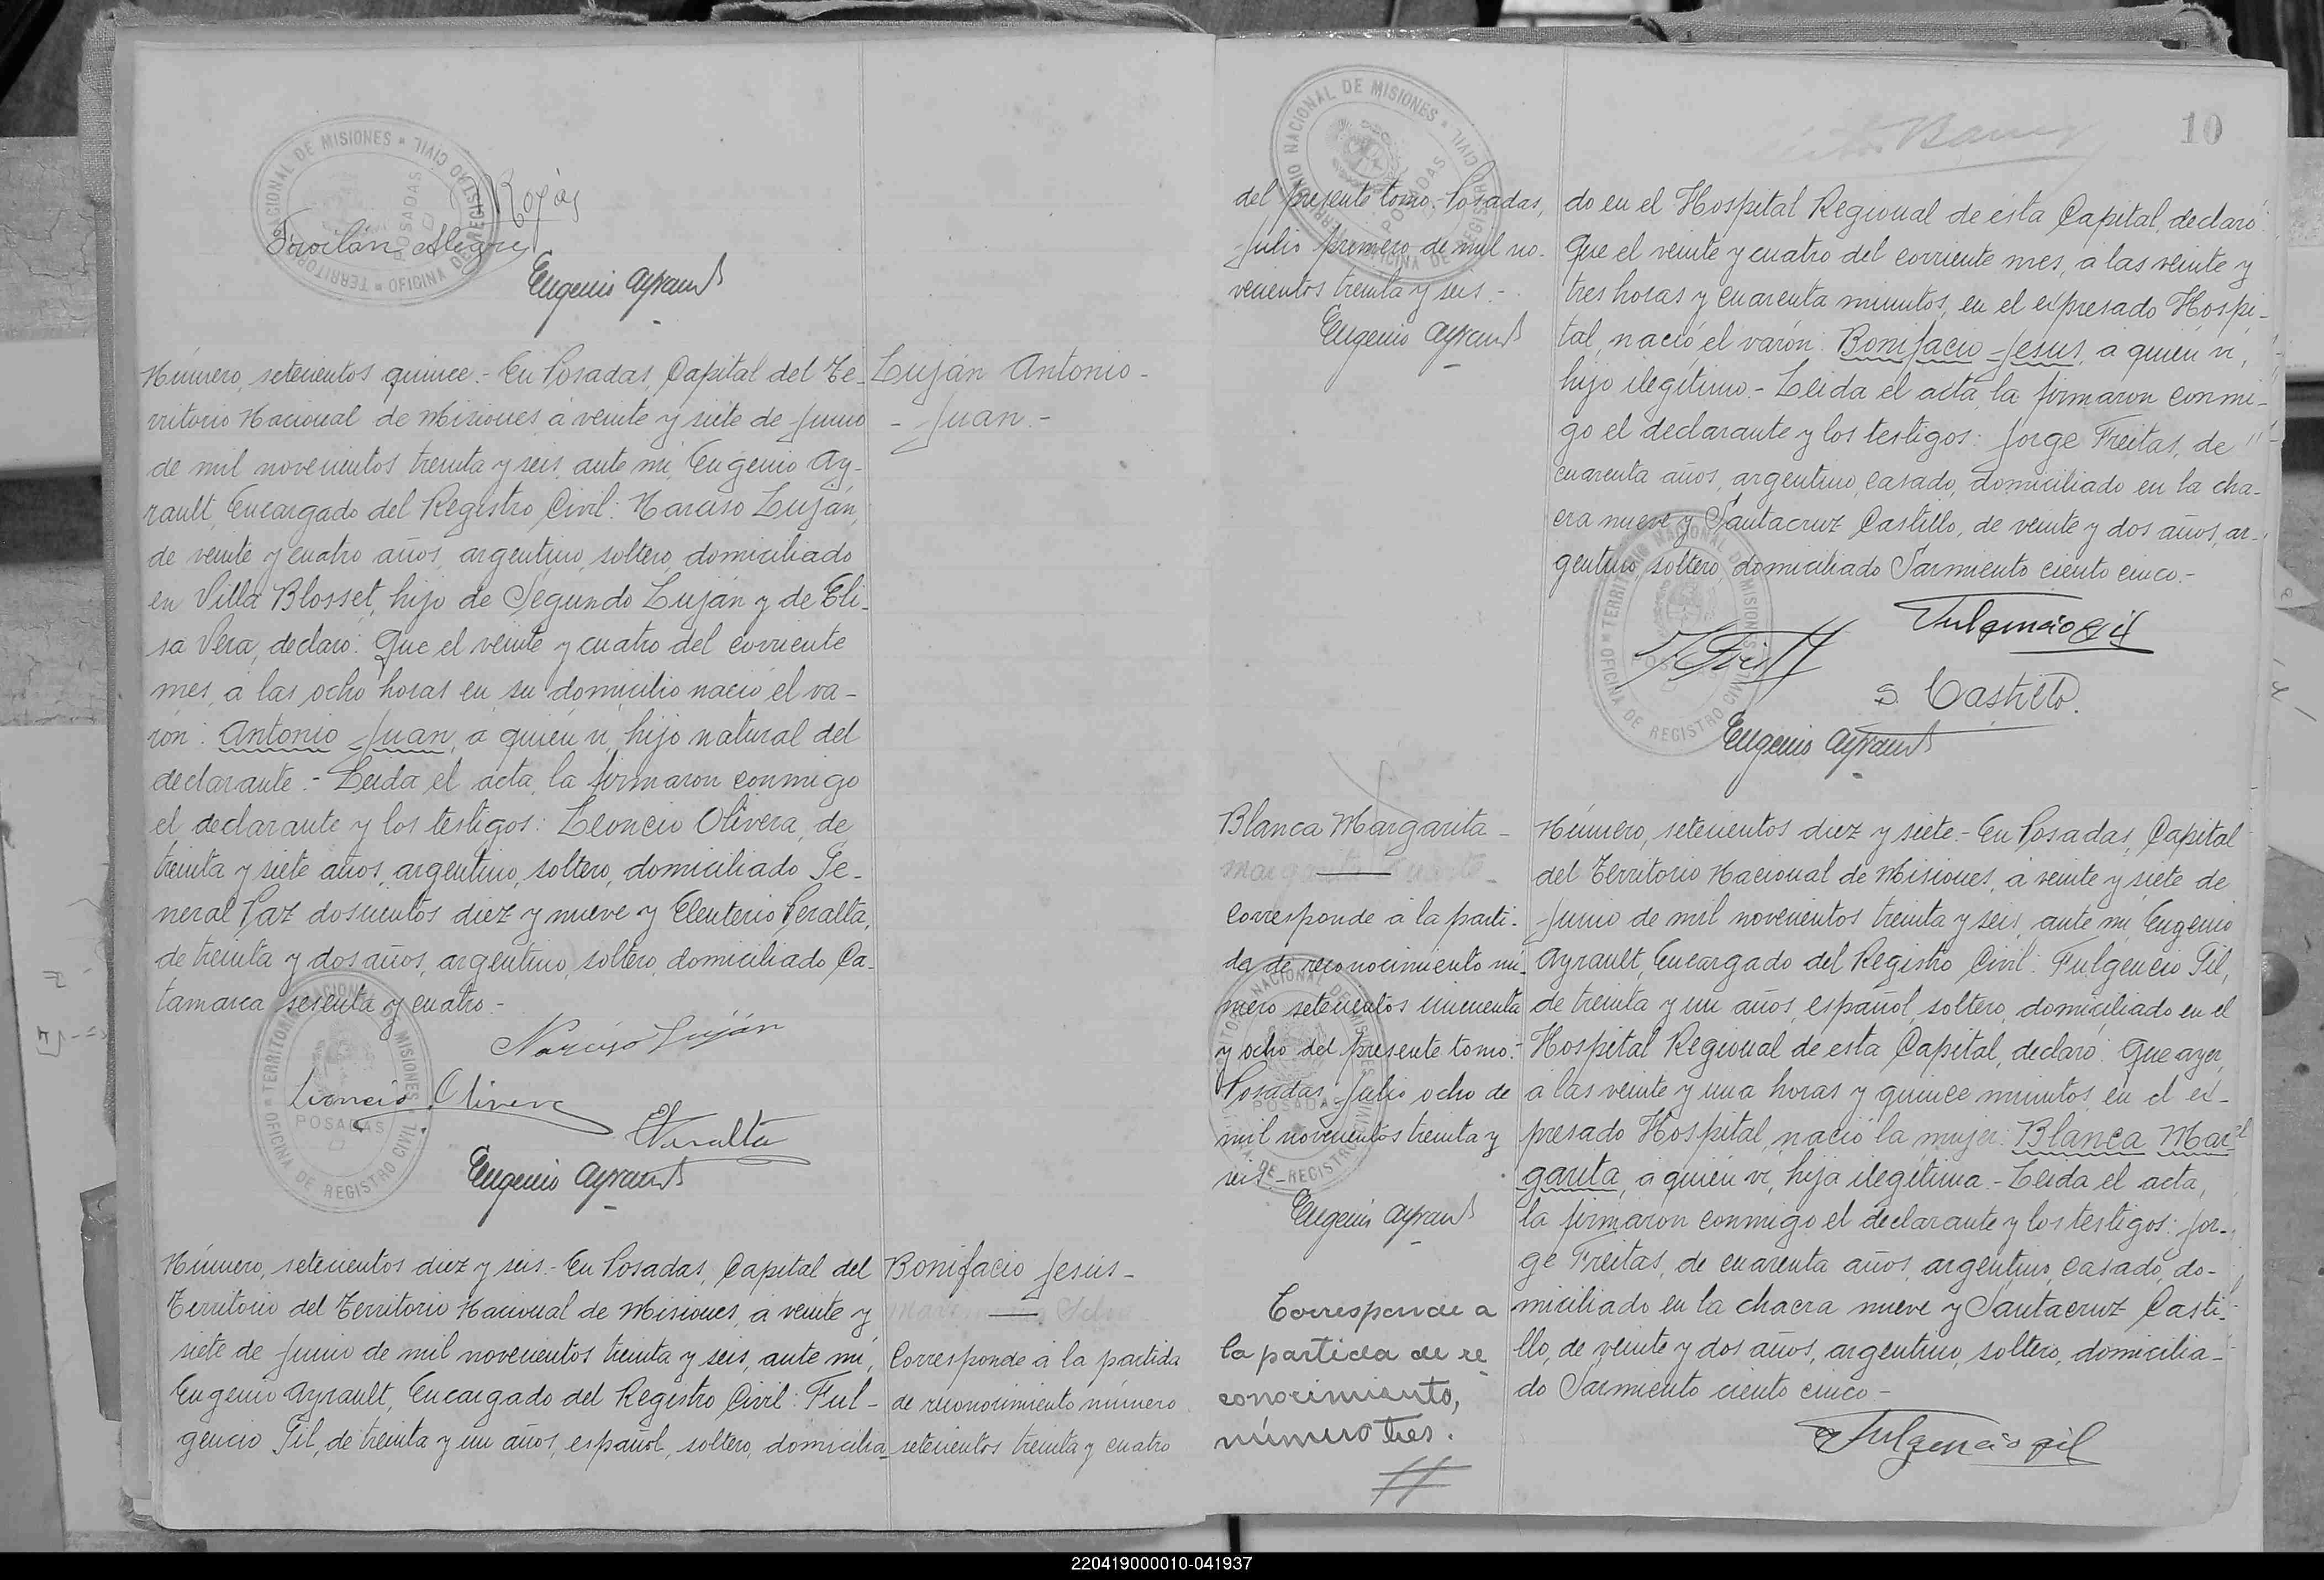 TERRITORIO NACIONAL DE MISIONES * OFICINA DE REGISTRO CIVIL
POSADAS
Rojas
Froilán Alegre
Eugenio Ayrault
Número, setecientos quince.- En Posadas, Capital del Te-
rritorio Nacional de Misiones, á veinte y siete de Junio
de mil novecientos treinta y seis, ante mí, Eugenio Ay-
rault, Encargado del Registro Civil: Narciso Luján,
de veinte y cuatro años, argentino, soltero, domiciliado
en Villa Blosset, hijo de Segundo Luján y de Eli-
sa Vera, declaró: Que el veinte y cuatro del corriente
mes, á las ocho horas en su domicilio nació el va-
rón: Antonio Juan, a quién vi, hijo natural del
declarante.- Leída el acta, la firmaron conmigo
el declarante y los testigos: Leoncio Olivera, de
treinta y siete años, argentino, soltero, domiciliado Ge-
neral Paz doscientos diez y nueve y Eleuterio Peralta,
de treinta y dos años, argentino, soltero, domiciliado Ca-
tamarca sesenta y cuatro.-
Luján Antonio -
- Juan.-
Narciso Luján
Leoncio Olivera
EPeralta
Eugenio Ayrault
TERRITORIO NACIONAL DE MISIONES * OFICINA DE REGISTRO CIVIL
POSADAS
Número, setecientos diez y seis.- En Posadas, Capital del
Territorio del Territorio Nacional de Misiones, á veinte y
siete de Junio de mil novecientos treinta y seis, ante mí,
Eugenio Ayrault, Encargado del Registro Civil: Ful-
gencio Gil, de treinta y un años, español, soltero, domicilia-
Bonifacio Jesús-
Corresponde á la partida
de reconocimiento número
setecientos treinta y cuatro
10
TERRITORIO NACIONAL DE MISIONES * OFICINA DE REGISTRO CIVIL
POSADAS
del presente tomo. Posadas,
Julio primero de mil no-
vecientos treinta y seis.-
Eugenio Ayrault
do en el Hospital Regional de ésta Capital, declaró:
Que el veinte y cuatro del corriente mes, a las veinte y
tres horas y cuarenta minutos, en el expresado Hospi-
tal, nació el varón: Bonifacio Jesus, a quién vi,
hijo ilegítimo.- Leída el acta, la firmaron conmi-
go el declarante y los testigos: Jorge Freitas, de
cuarenta años, argentino, casado, domiciliado en la cha-
cra nueve y Santacruz Castillo, de veinte y dos años, ar-
gentino, soltero, domiciliado Sarmiento ciento cinco.-
Fulgencio Gil
S. Castillo.
Eugenio Ayrault
TERRITORIO NACIONAL DE MISIONES * OFICINA DE REGISTRO CIVIL
POSADAS
Blanca Margarita -
Corresponde á la parti-
da de reconocimiento nú-
mero setecientos cincuenta
y ocho del presente tomo.-
Posadas, Julio ocho de
mil novecientos treinta y
seis.-
Eugenio Ayrault
Corresponde a
la partida de re
conocimiento,
número tres.
Número, setecientos diez y siete.- En Posadas, Capital
del Territorio Nacional de Misiones, á veinte y siete de
Junio de mil novecientos treinta y seis, ante mí, Eugenio
Ayrault, Encargado del Registro Civil: Fulgencio Gil,
de treinta y un años, español, soltero, domiciliado en el
Hospital Regional de esta Capital, declaró: Que ayer,
á las veinte y una horas y quince minutos, en el ex-
presado Hospital, nació la mujer: Blanca Mar-
garita, a quién vi, hija ilegítima.- Leída el acta,
la firmaron conmigo el declarante y los testigos: Jor-
ge Freitas, de cuarenta años, argentino, casado, do-
miciliado en la chacra nueve y Santacruz Casti-
llo, de veinte y dos años, argentino, soltero, domicilia-
do Sarmiento ciento cinco.-
Fulgencio Gil
220419000010-041937